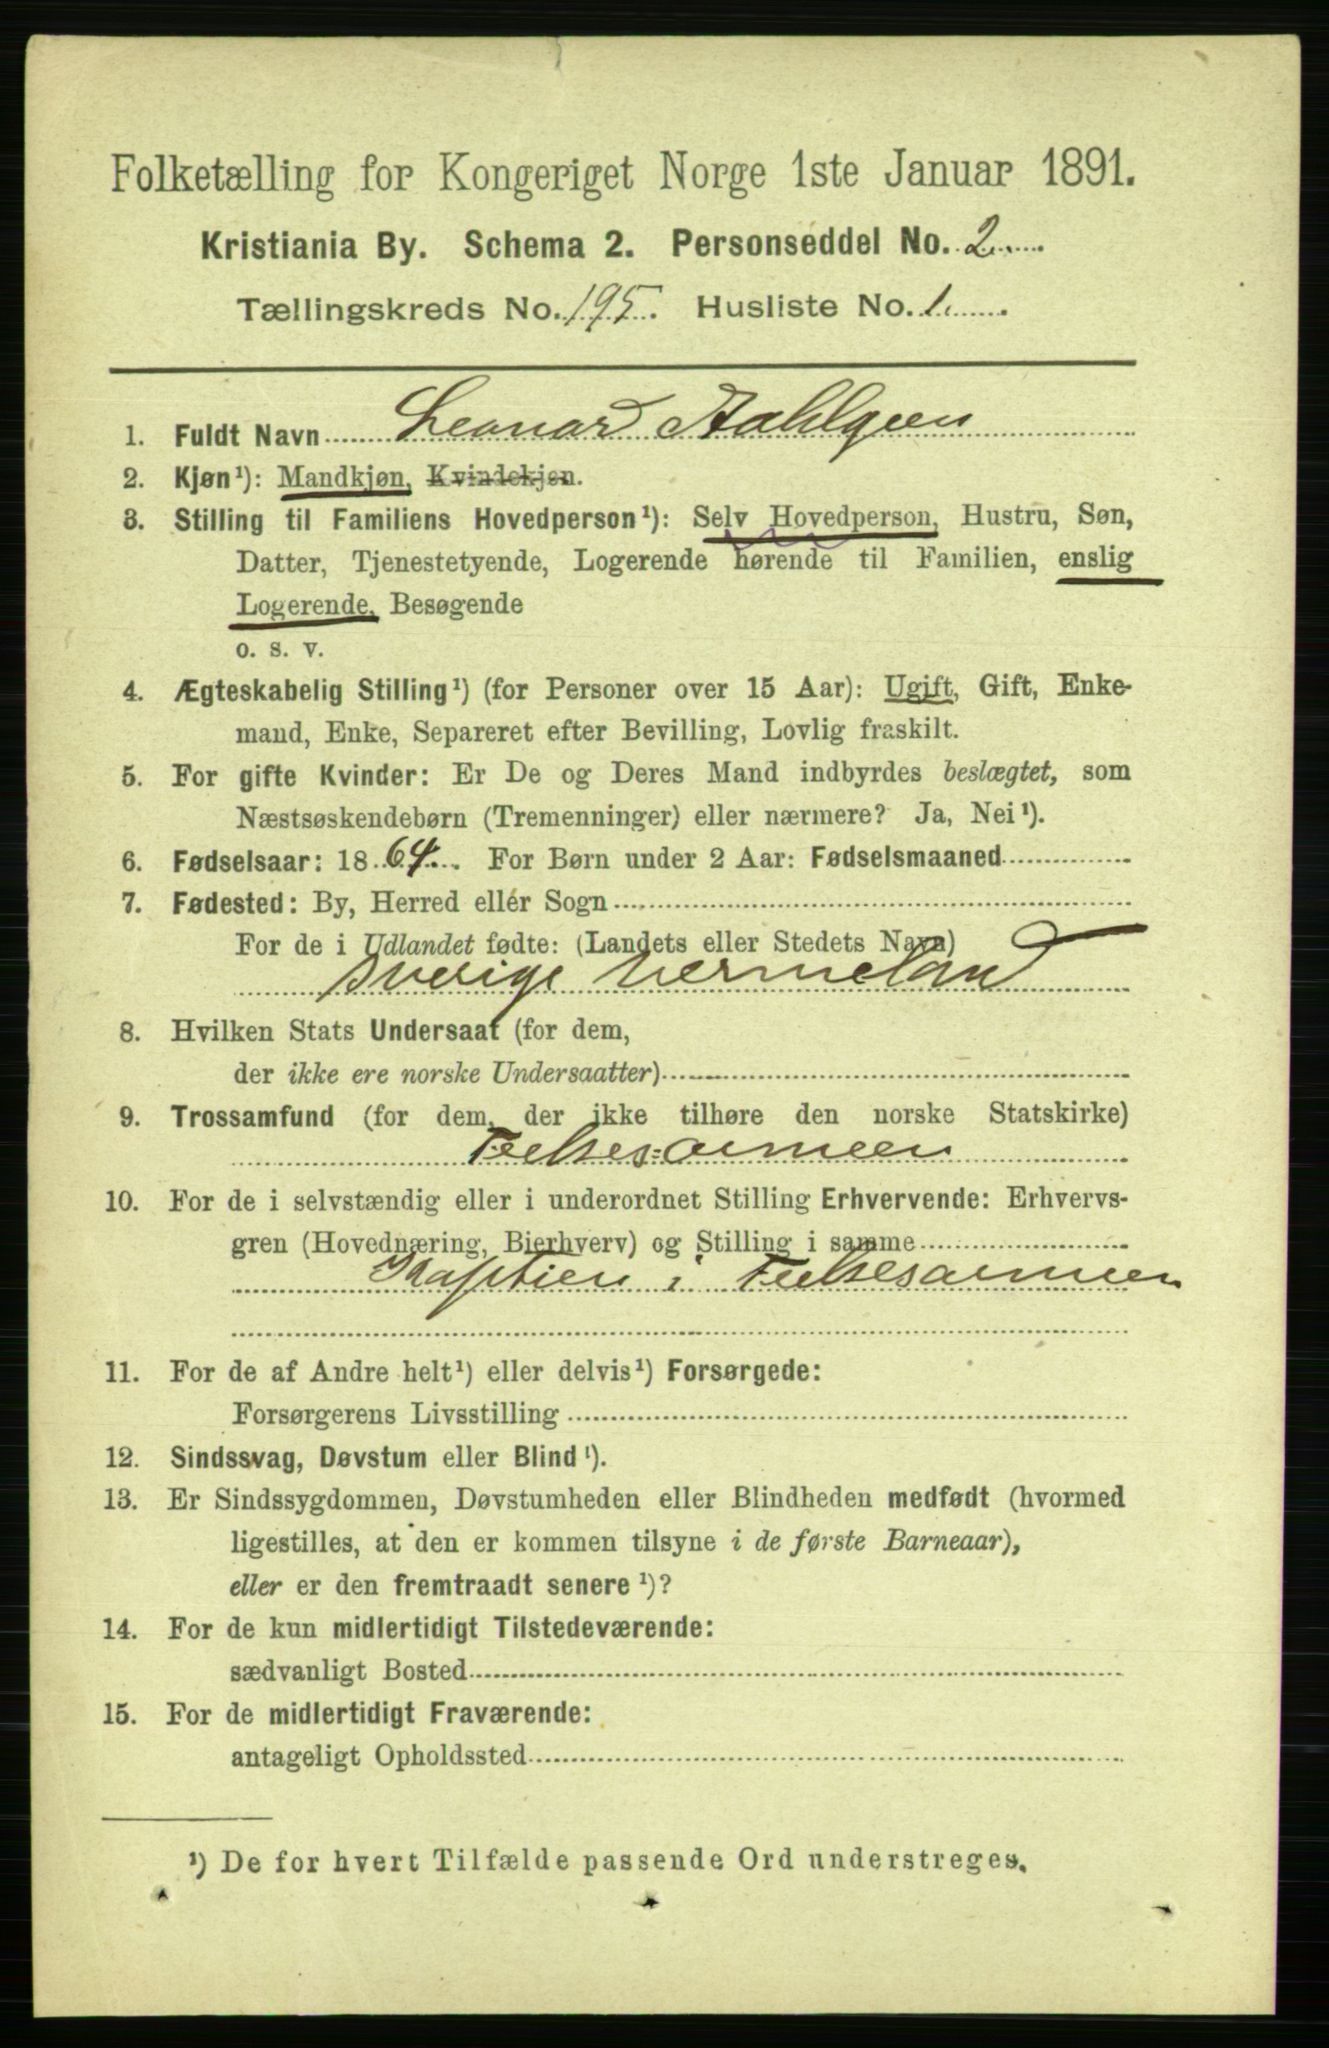 Folketælling for Kongeriget Norge 1ste Januar 1891.
Kristiania By. Schema 2. Personseddel No. 2
Tællingskreds No. 195. Husliste No. 1.
1. Fuldt Navn Leonard Aahlgren
2. Kjøn¹): Mandkjøn, Kvindekjøn.
3. Stilling til Familiens Hovedperson¹): Selv Hovedperson, Hustru, Søn,
Datter, Tjenestetyende, Logerende hørende til Familien, enslig
Logerende, Besøgende
o. s. v.
4. Ægteskabelig Stilling¹) (for Personer over 15 Aar): Ugift, Gift, Enke-
mand, Enke, Separeret efter Bevilling, Lovlig fraskilt.
5. For gifte Kvinder: Er De og Deres Mand indbyrdes beslægtet, som
Næstsøskendebørn (Tremenninger) eller nærmere? Ja, Nei¹).
6. Fødselsaar: 1864. For Børn under 2 Aar: Fødselsmaaned
7. Fødested: By, Herred eller Sogn
For de i Udlandet fødte: (Landets eller Stedets Navn)
Sverige Vermeland
8. Hvilken Stats Undersaat (for dem,
der ikke ere norske Undersaatter)
9. Trossamfund (for dem, der ikke tilhøre den norske Statskirke)
Frelsesarmeen
10. For de i selvstændig eller i underordnet Stilling Erhvervende: Erhvervs-
gren (Hovednæring, Bierhverv) og Stilling i samme
Kaptien i Frelsesarmeen
11. For de af Andre helt¹) eller delvis¹) Forsørgede:
Forsørgerens Livsstilling
12. Sindssvag, Døvstum eller Blind¹).
13. Er Sindssygdommen, Døvstumheden eller Blindheden medfødt (hvormed
ligestilles, at den er kommen tilsyne i de første Barneaar),
eller er den fremtraadt senere¹)?
14. For de kun midlertidigt Tilstedeværende:
sædvanligt Bosted
15. For de midlertidigt Fraværende:
antageligt Opholdssted
¹) De for hvert Tilfælde passende Ord understreges.